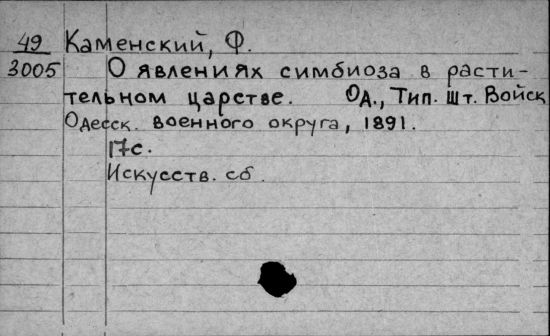 49 Каменский, Ф.
3005 О явлениях симбиоза в расти-
тельном царстве. Од., Тип. Шт. Войск
Одесск. военного округа, 1891.
17с.
Искусств. сб.